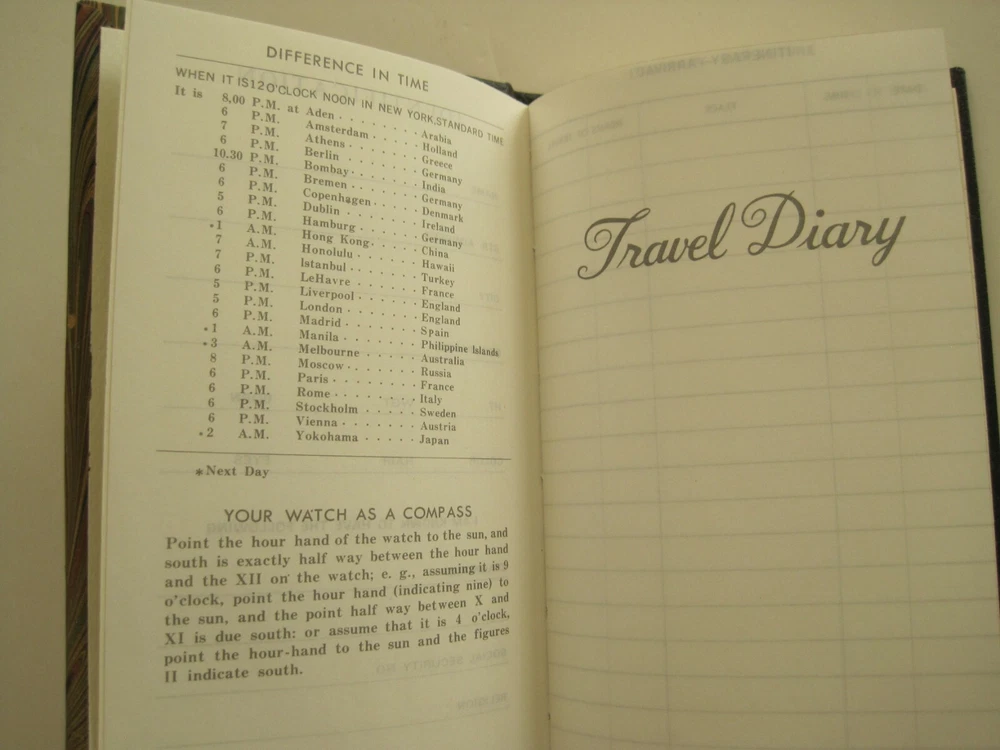 DIFFERENCE IN TIME
WHEN IT IS 12 O'CLOCK NOON IN NEW YORK, STANDARD TIME
It is 8.00 P.M. at Aden . . . . . . . . Arabia
6 P.M. Amsterdam . . . . . Holland
7 P.M. Athens . . . . . . . Greece
6 P.M. Berlin . . . . . . . Germany
10.30 P.M. Bombay . . . . . . India
6 P.M. Bremen . . . . . . . Germany
6 P.M. Copenhagen . . . . . Denmark
5 P.M. Dublin . . . . . . . Ireland
6 P.M. Hamburg . . . . . . Germany
*1 A.M. Hong Kong . . . . . China
7 A.M. Honolulu . . . . . . Hawaii
7 P.M. Istanbul . . . . . . Turkey
6 P.M. LeHavre . . . . . . France
5 P.M. Liverpool . . . . . . England
5 P.M. London . . . . . . . England
6 P.M. Madrid . . . . . . . Spain
*1 A.M. Manila . . . . . . . Philippine Islands
*3 A.M. Melbourne . . . . . Australia
8 P.M. Moscow . . . . . . . Russia
6 P.M. Paris . . . . . . . . France
6 P.M. Rome . . . . . . . . Italy
6 P.M. Stockholm . . . . . Sweden
6 P.M. Vienna . . . . . . . Austria
*2 A.M. Yokohama . . . . . Japan
*Next Day
YOUR WATCH AS A COMPASS
Point the hour hand of the watch to the sun, and
south is exactly half way between the hour hand
and the XII on the watch; e. g., assuming it is 9
o'clock, point the hour hand (indicating nine) to
the sun, and the point half way between X and
XI is due south: or assume that it is 4 o'clock,
point the hour-hand to the sun and the figures
II indicate south.
Travel Diary